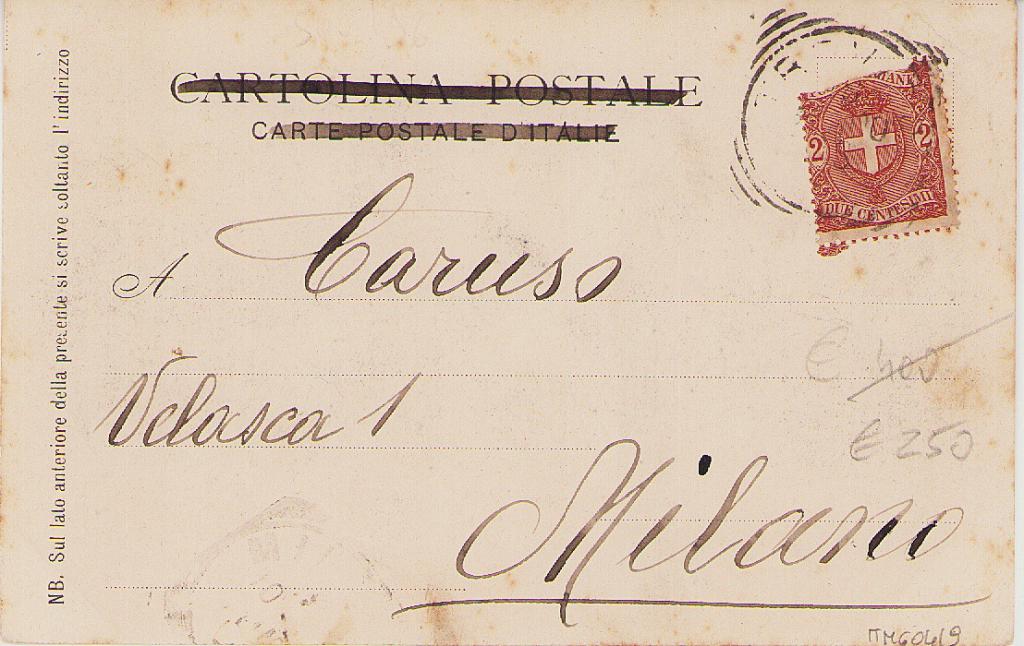 CARTOLINA POSTALE
CARTE POSTALE D'ITALIE
2 2
DUE CENTESIMI
A Caruso
Velasca 1
Milano
€ 400
€ 250
NB. Sul lato anteriore della presente si scrive soltanto l'indirizzo
TM60419